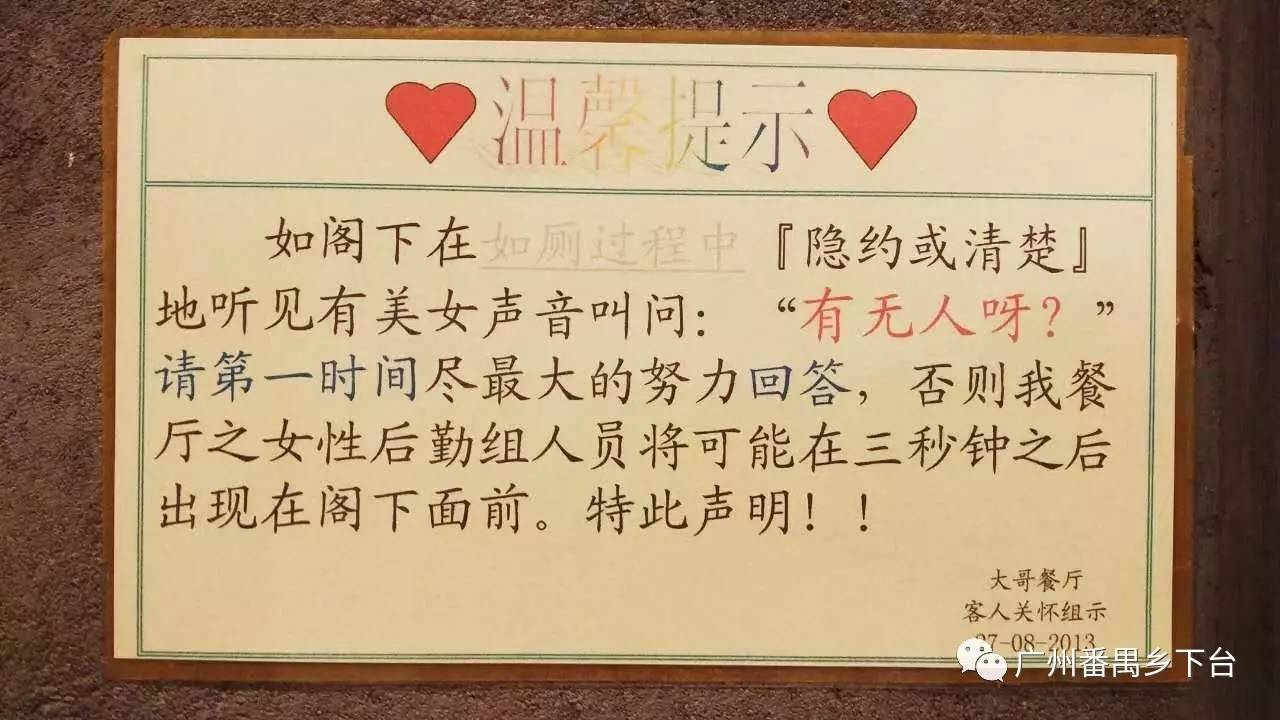 温馨提示
如阁下在如厕过程中『隐约或清楚』
地听见有美女声音叫问：“有无人呀？”
请第一时间尽最大的努力回答，否则我餐
厅之女性后勤组人员将可能在三秒钟之后
出现在阁下面前。特此声明！！
大哥餐厅
客人关怀组示
27-08-2013
广州番禺乡下台